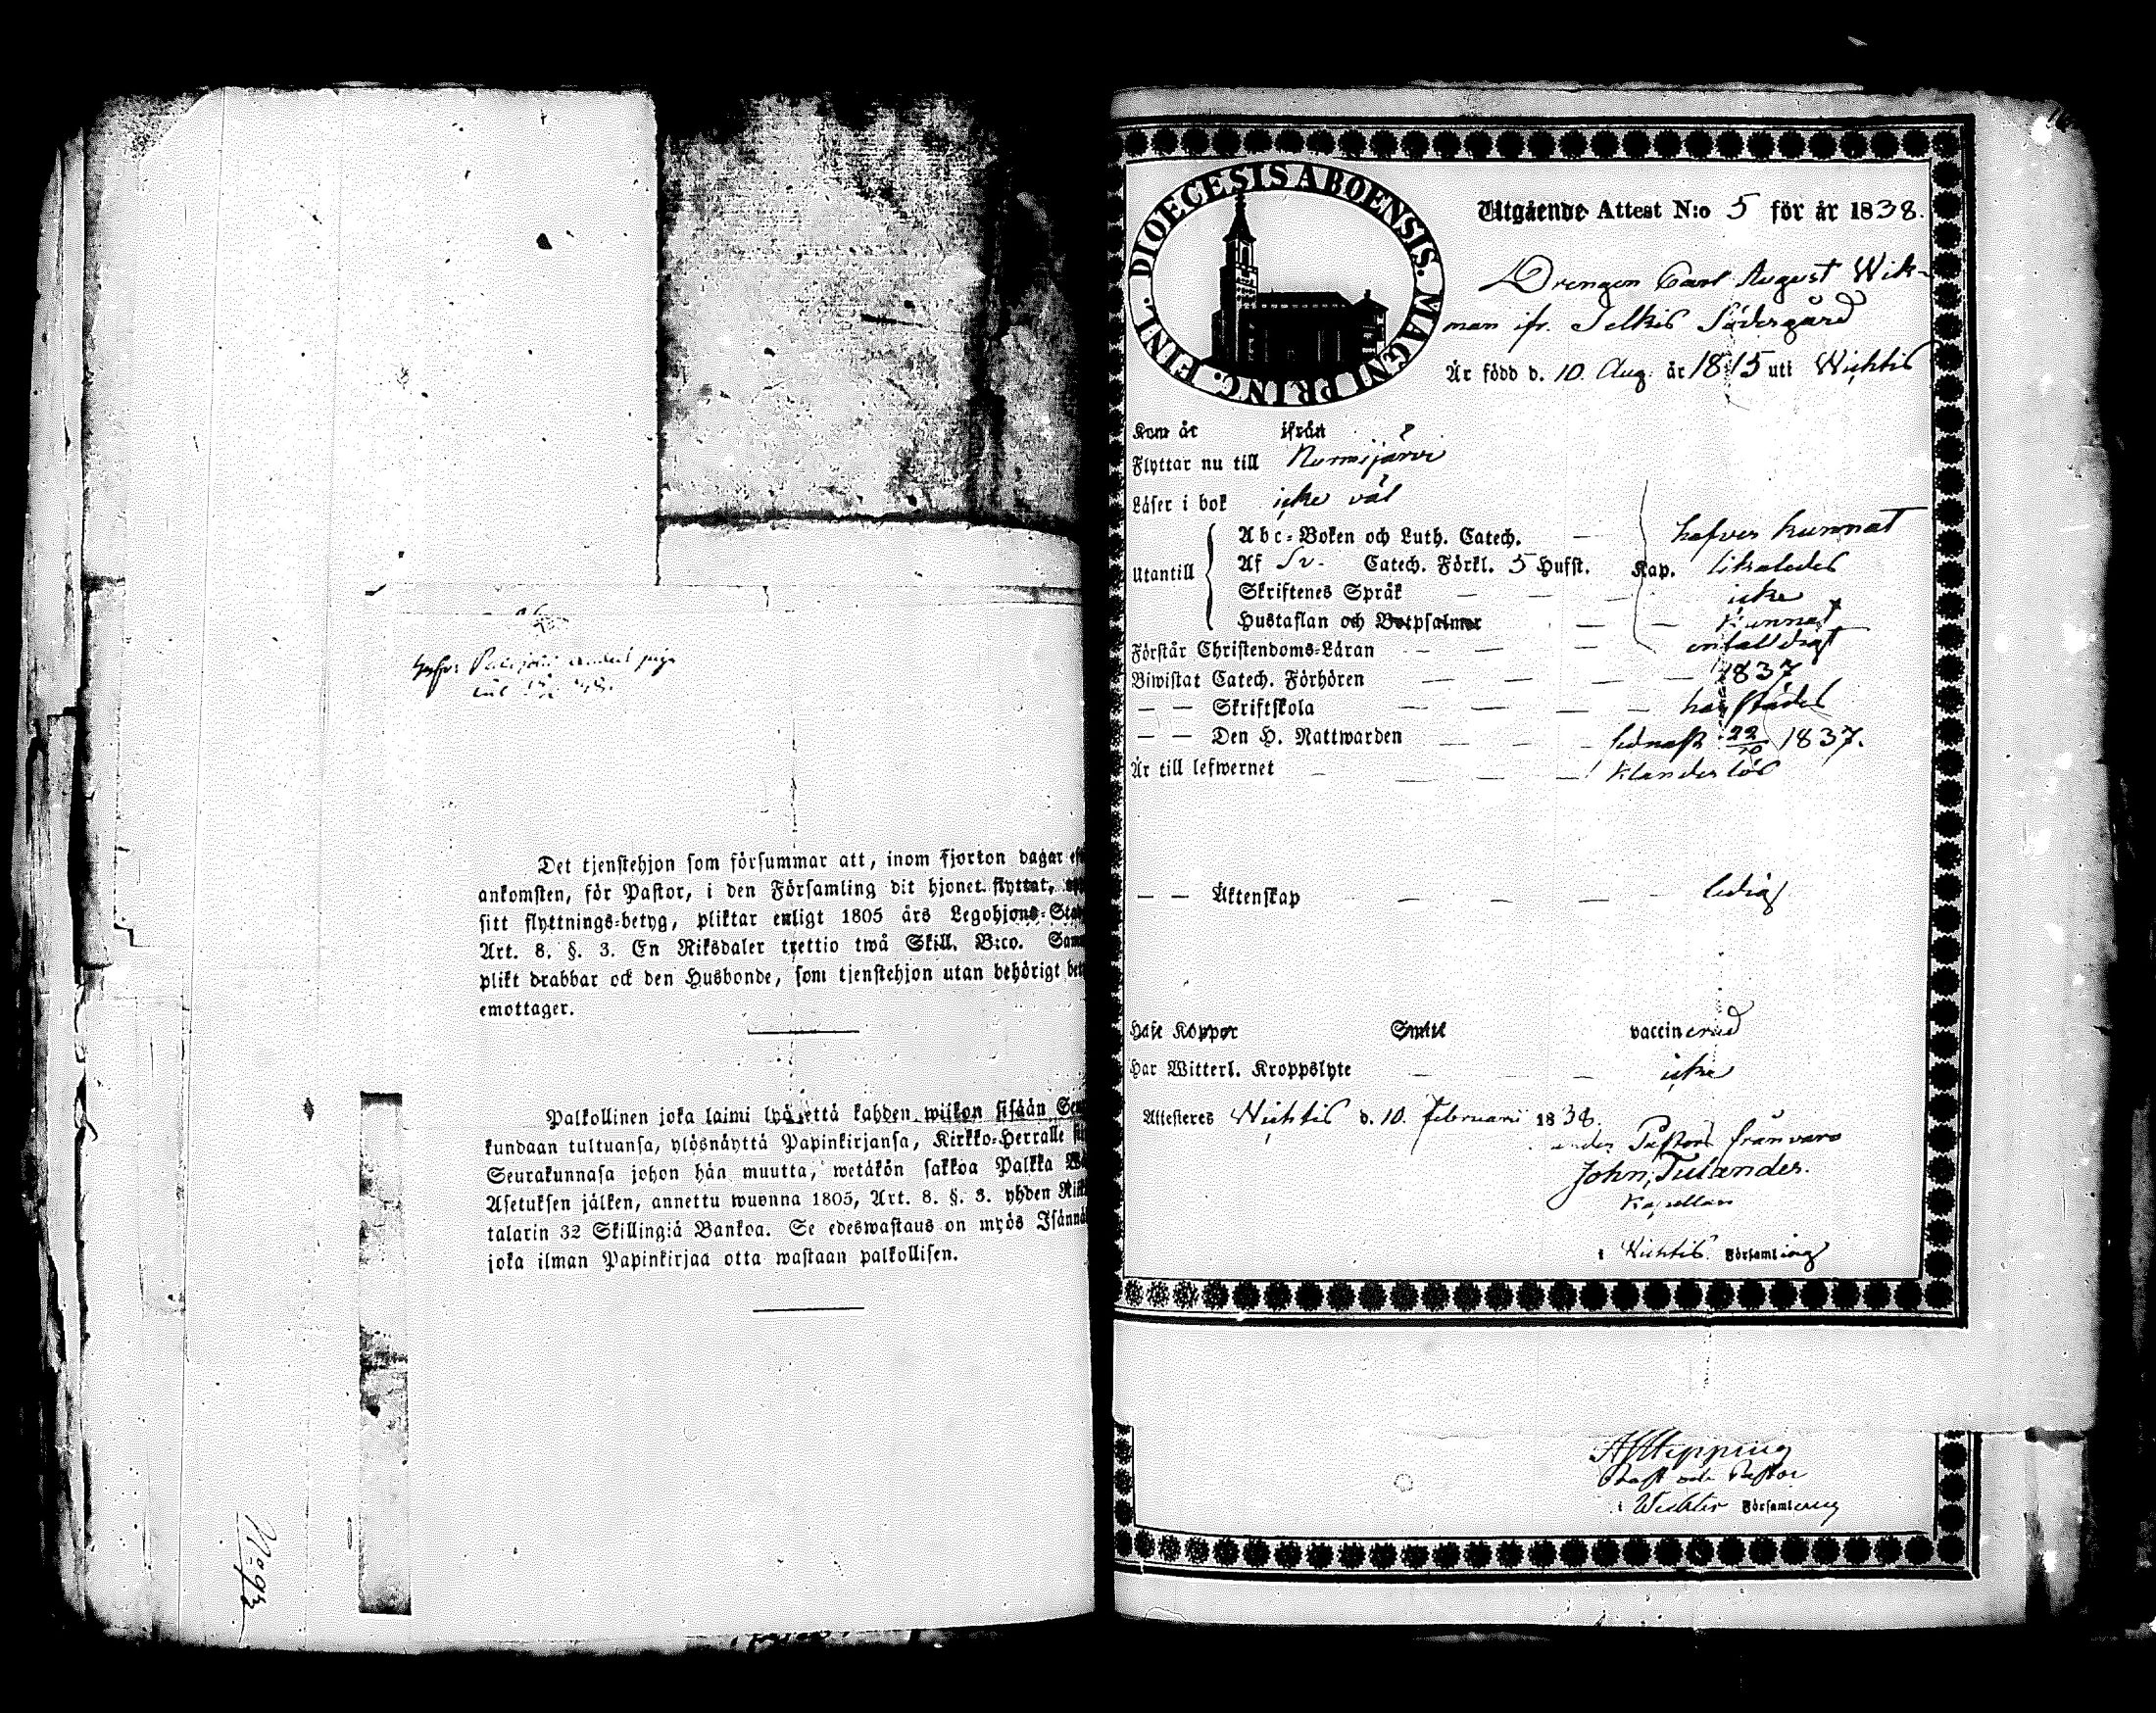 Det tjenstehjon som försummar att, inom fjorton dagar
ankomsten, för Pastor, i den Församling dit hjonet flyttat,
sitt flyttnings-betyg, pliktar enligt 1805 års Legohjons-
Art. 8. §. 3. En Riksdaler trettio twå Skill. B:co.
plikt drabbar ock den Husbonde, som tjenstehjon utan behörigt
emottager.
Palkollinen joka laimi lyö että kahden wiikon sisään
kundaan tultuansa, ylösnäyttä Papinkirjansa, Kirkko-Herralle
Seurakunnasa johon hän muutta, wetäkön sakkoa Palkka
Asetuksen jälken, annettu wuonna 1805, Art. 8. §. 3. yhden
talarin 32 Skillingiä Bankoa. Se edeswastaus on myös
joka ilman Papinkirjaa otta wastaan palkollisen.
DIOECESIS ABOENSIS. MAGNI PRINC. FINL.
Utgående Attest N:o 5 för år 1838.
Drengen Carl August Wik-
man ifr. Selkis Södergård
Är född d. 10. Aug. år 1815 uti Wichtis
Kom år ifrån
Flyttar nu till Nurmijärvi
Läser i bok icke väl
Utantill
Abc-Boken och Luth. Catech. — hafver kunnat
Af Sv. Catech. Förkl. 5 Hufst. Kap. likaledes
Skriftenes Språk — — — icke
Hustaflan och Botpsalmer — — kunnat
Förstår Christendoms-Läran — — — enfalldigt
Biwistat Catech. Förhören — — — — 1837
— — Skriftskola — — — — härstädes
— — Den H. Nattwarden — — — sednast 22/10 1837.
Är till lefwernet — — — — klanderlös
— — Äktenskap — — — — ledig
Haft Koppor Smitt vaccinerad
Har Witterl. Kroppslyte — — — icke
Attesteres Wichtis d. 10. Februari 1838.
under Pastors frånvaro
John. Tulander.
Kapellan
i Wichtis Församling
Prost och Pastor
i Wichtis Församling